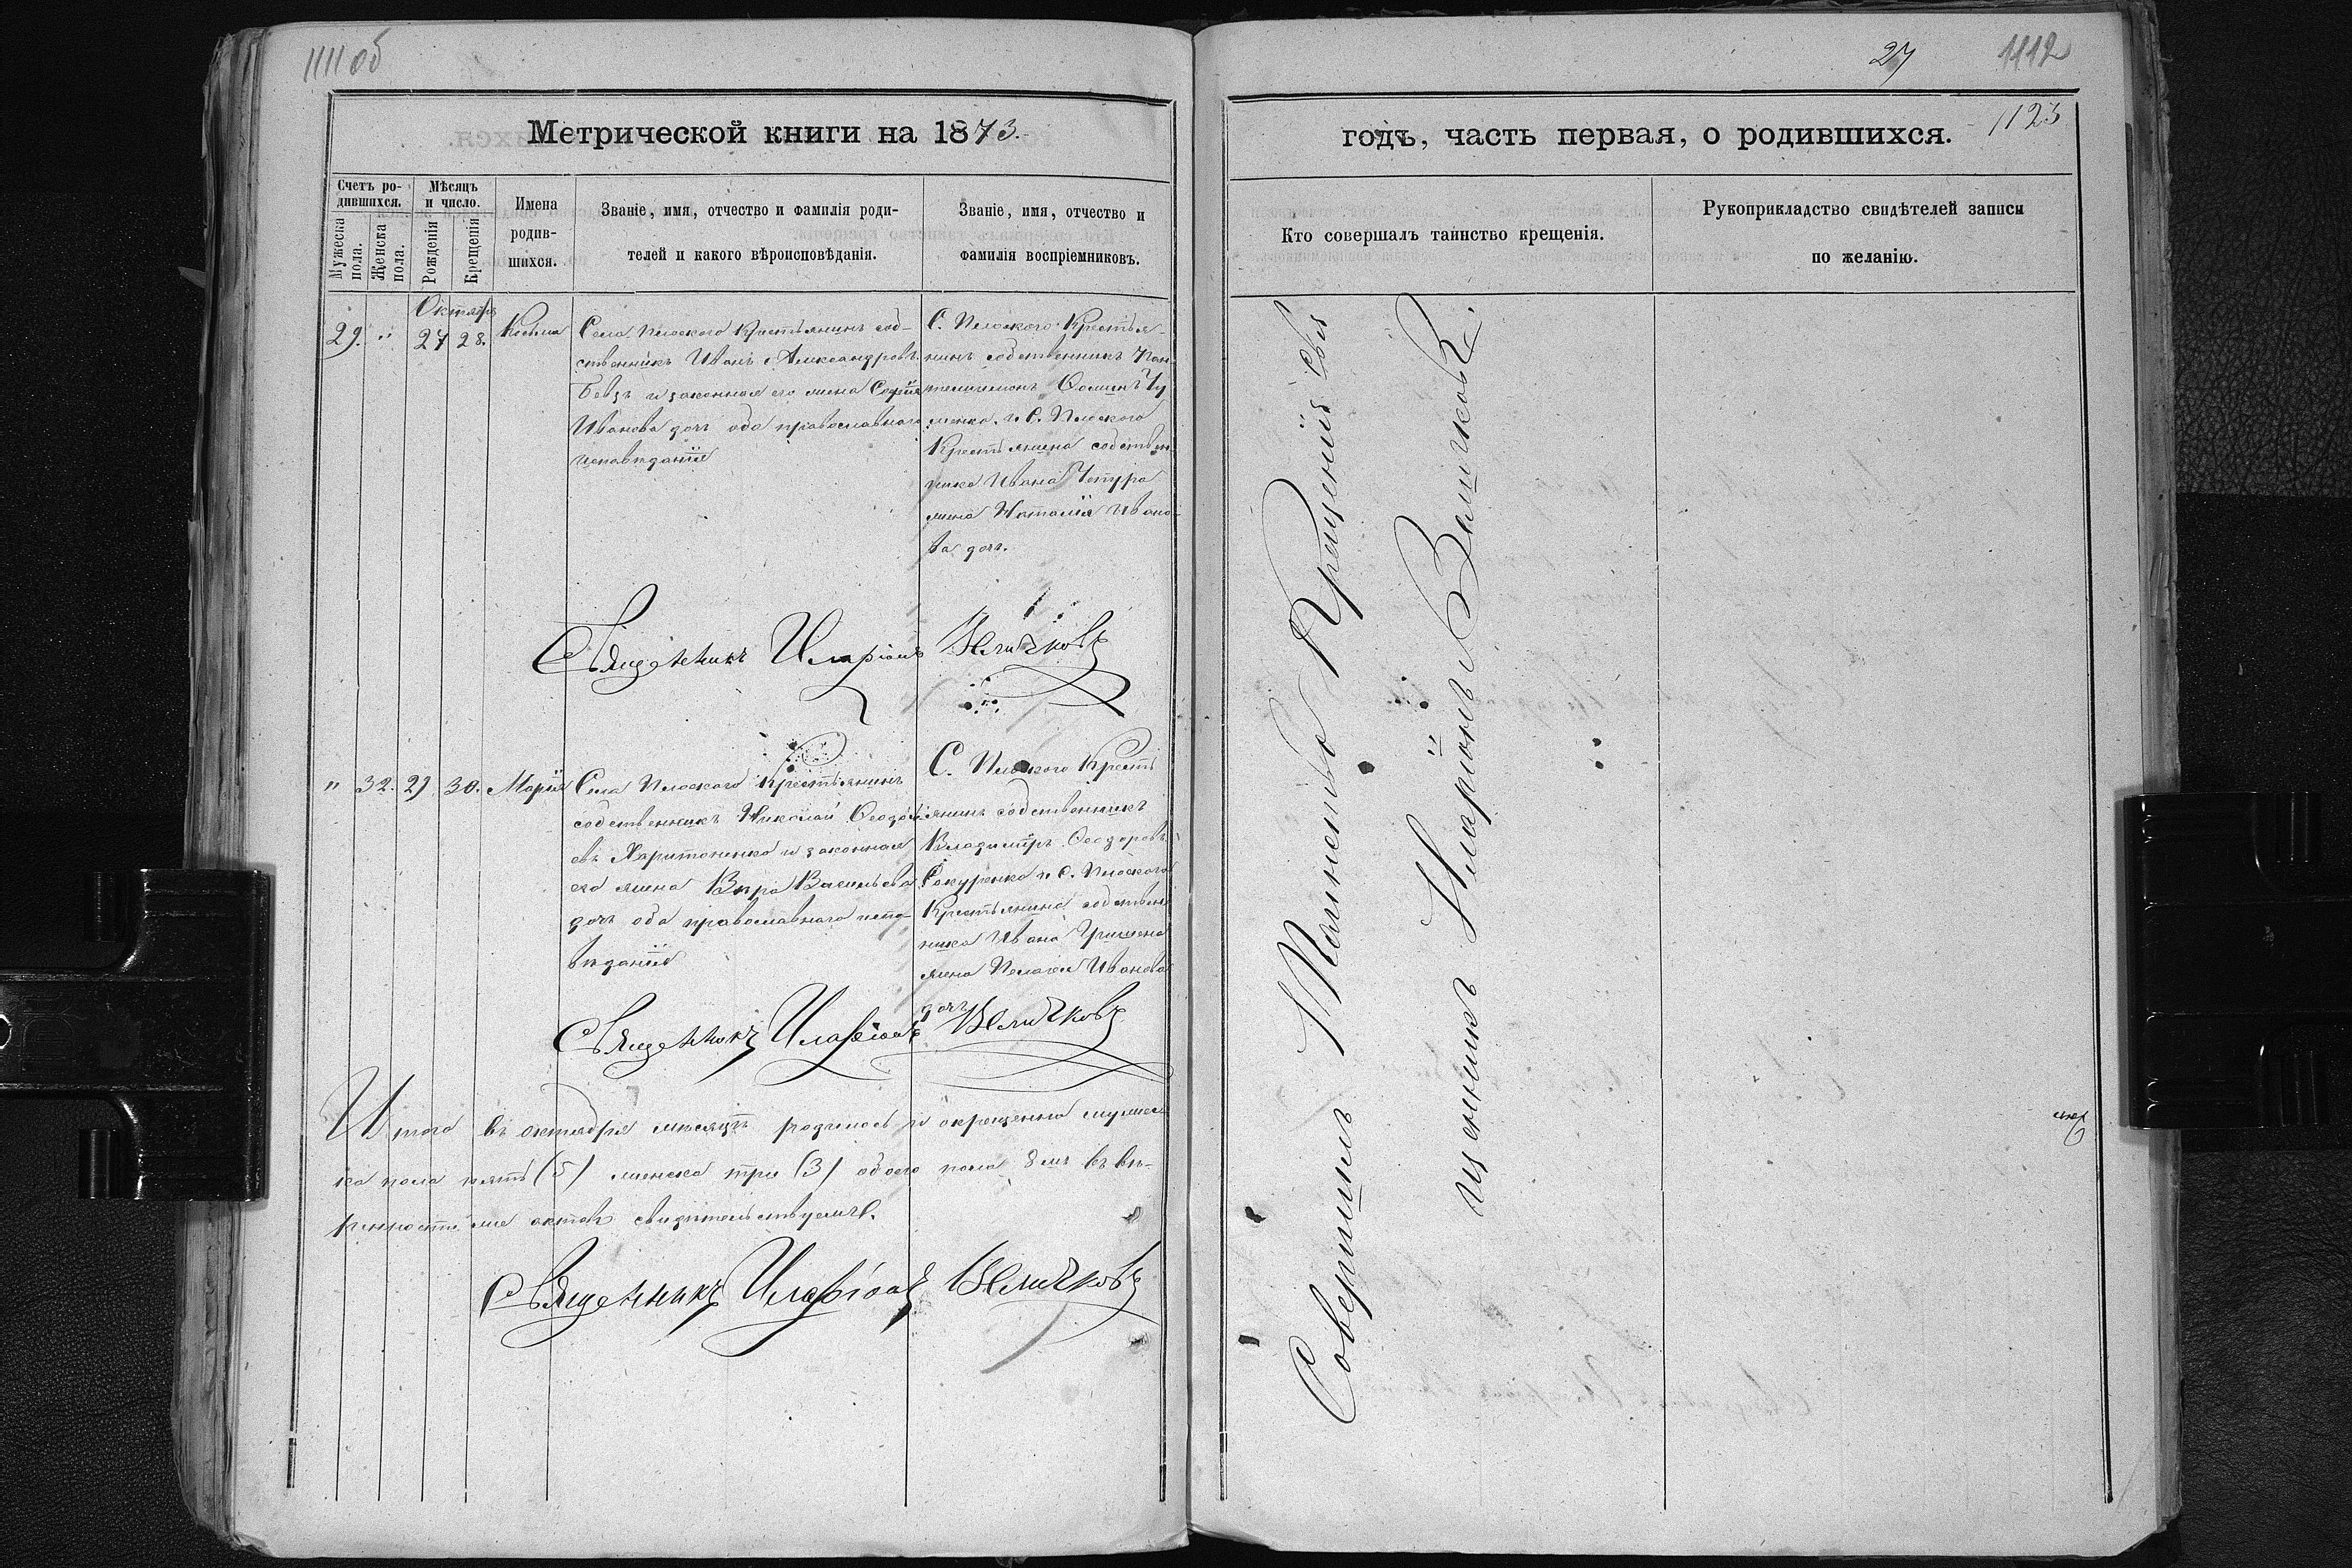 1111 об
Метрической книги на 1873.
Счетъ ро-
дившихся.
Мѣсяцъ
и число.
Имена
родив-
шихся.
Званіе, имя, отчество и фамилія роди-
телей и какого вѣроисповѣданія.
Званіе, имя, отчество и
фамилія воспріемниковъ.
Мужеска
пола.
Женска
пола.
Рожденія
Крещенія
Октяб
29. " 27 28.
Села Плоского Крестьянинъ соб-
ственникъ Иванъ Александровъ
и законная его жена Софія
Иванова дочь оба православнаго
исповѣданія
С. Плоского Крестья-
нинъ собственникъ Пан-
телеимонъ
и С. Плоского
Крестьянина собствен-
ника Ивана Чепура
жена Наталія Ивано-
ва доч.
Священникъ Иларіонъ Величковъ
" 32. 29 30. Марія
Села Плоского Крестьянинъ
собственникъ Николай
евъ Харитоненко и законная
его жена Вѣра Васильева
дочь оба православнаго испо-
вѣданія
С. Плоского Кресть
янинъ собственникъ
Владиміръ Ѳеодоровъ
и С. Плоского
Крестьянина собствен
ника Ивана
жена Пелагея Иванова
дочь
Священникъ Иларіонъ Величковъ
Итого въ октября мѣсяцѣ родилось и окрещенно мужес
ка пола пять (5) женска три (3) обоего пола 8мь въ вѣ-
рности же актовъ свидѣтельствуемъ.
Священникъ Иларіонъ Величковъ
27
1112
1123
годъ, часть первая, о родившихся.
Кто совершалъ таинство крещенія.
Рукоприкладство свидѣтелей записи
по желанію.
Совершилъ Таинство Крещенія Свя
щенникъ Иларіонъ Величковъ.